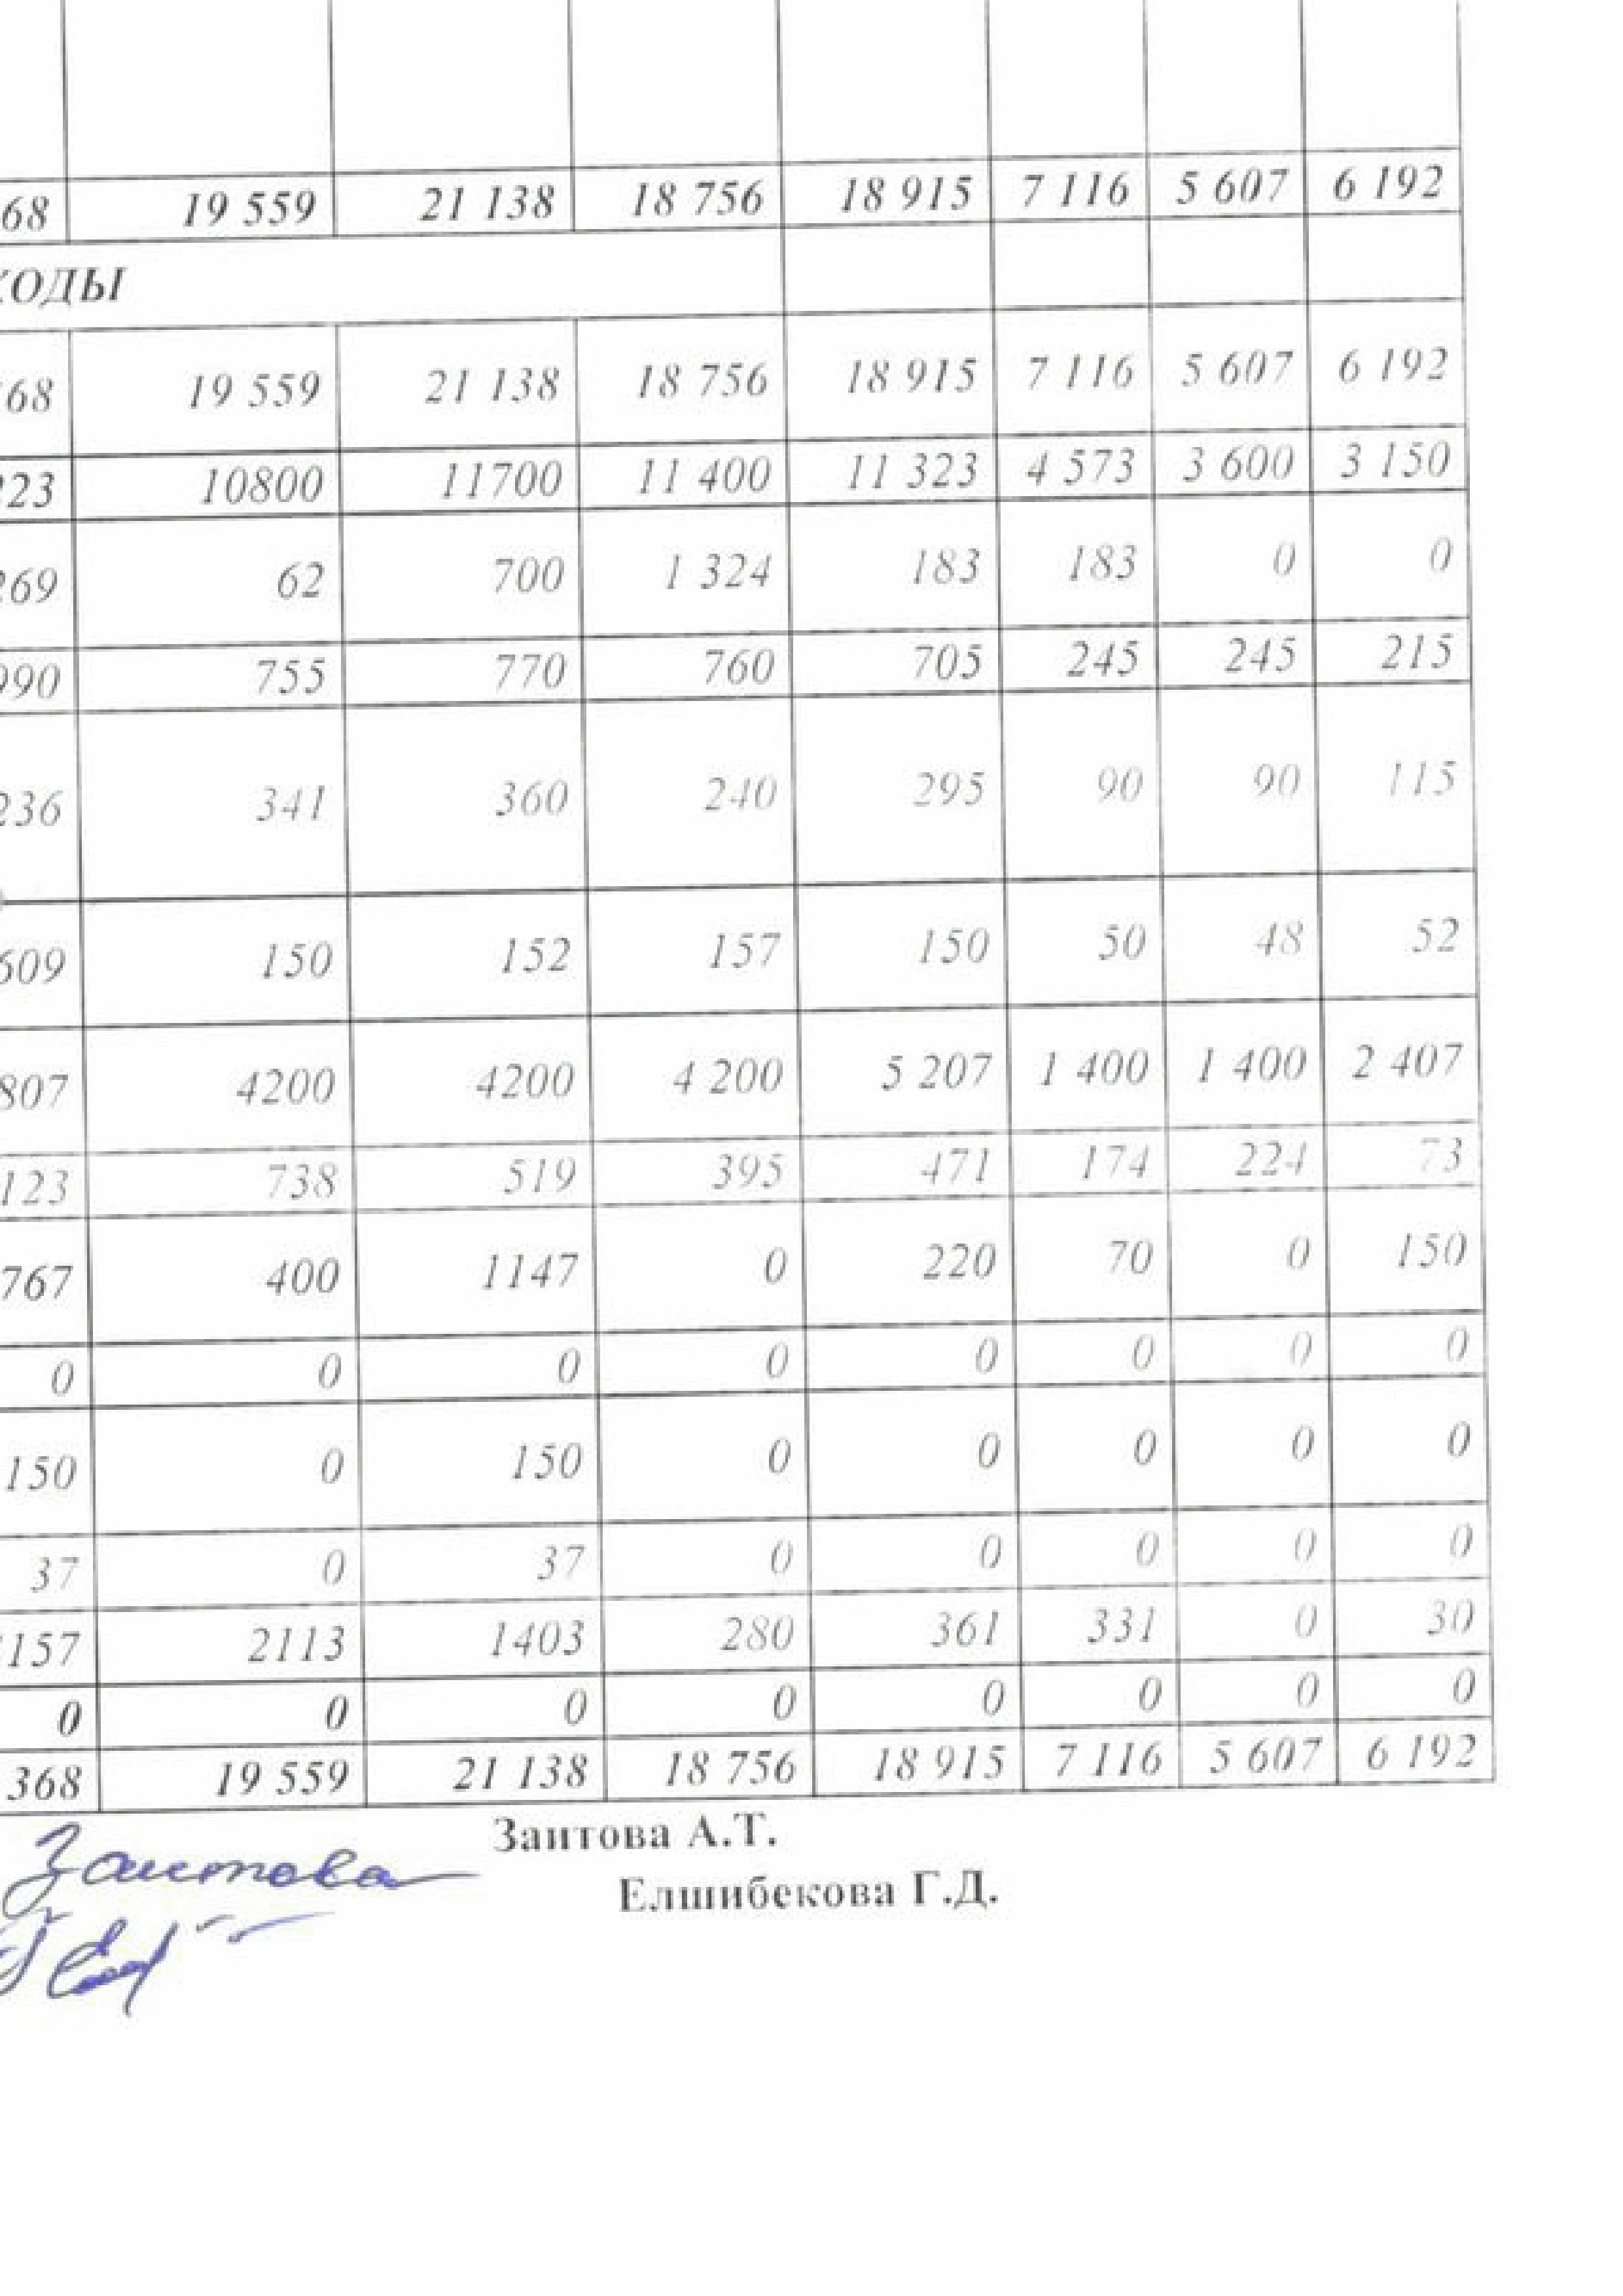 68 19 559 21 138 18 756 18 915 7 116 5 607 6 192
ХОДЫ
68 19 559 21 138 18 756 18 915 7 116 5 607 6 192
23 10800 11700 11 400 11 323 4 573 3 600 3 150
269 62 700 1 324 183 183 0 0
990 755 770 760 705 245 245 215
236 341 360 240 295 90 90 115
609 150 152 157 150 50 48 52
807 4200 4200 4 200 5 207 1 400 1 400 2 407
123 738 519 395 471 174 224 73
767 400 1147 0 220 70 0 150
0 0 0 0 0 0 0 0
150 0 150 0 0 0 0 0
37 0 37 0 0 0 0 0
157 2113 1403 280 361 331 0 30
0 0 0 0 0 0 0 0
368 19 559 21 138 18 756 18 915 7 116 5 607 6 192
Заитова Заитова А.Т.
Елшибекова Г.Д.